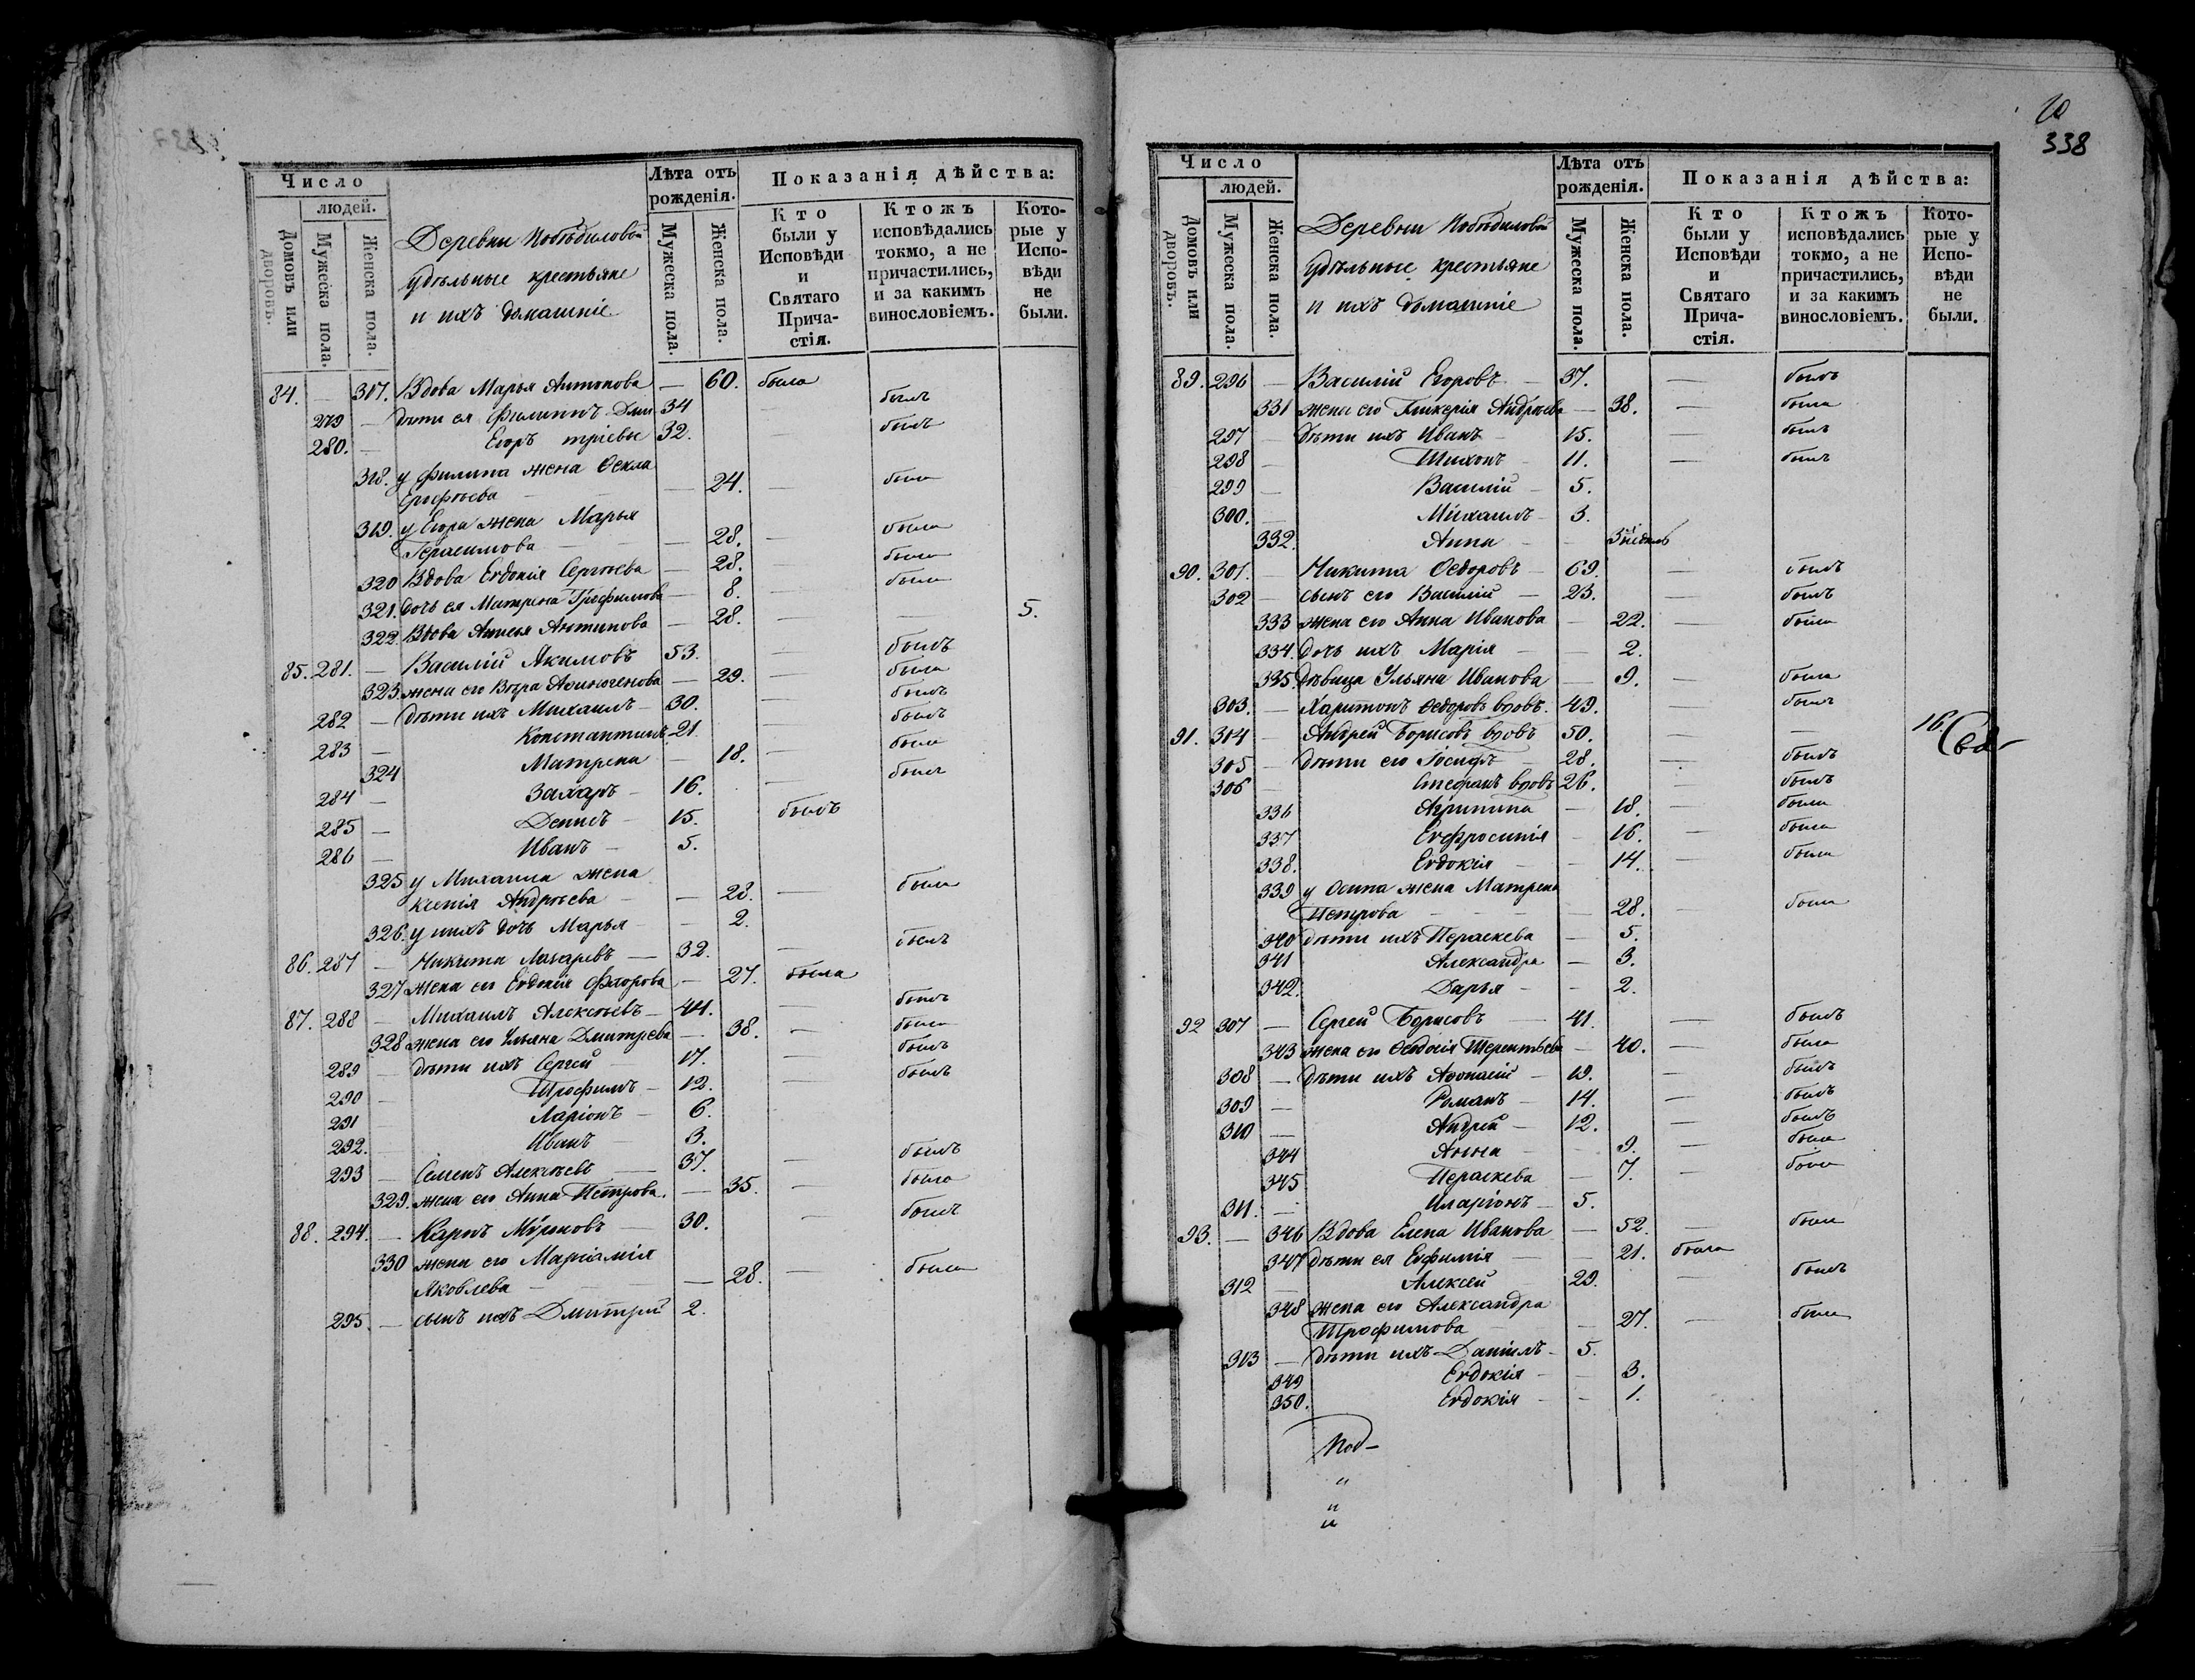 Число
людей.
Домовъ или дворовъ.
Мужеска пола.
Женска пола.
Деревни Побѣдиловой
удѣльные крестьяне
и ихъ домашніе
Лѣта отъ рожденія.
Мужеска пола.
Женска пола.
Показанія дѣйства:
Кто были у Исповѣди и Святаго Прича-стія.
Ктожъ исповѣдались токмо, а не причастились, и за какимъ винословіемъ.
Кото-рые у Испо-вѣди не были.
84. — 317. Вдова Марья Антонова — 60. была
279 — дѣти ея Филиппъ Дми- 34 былъ
280. — Егоръ тріевы 32. — былъ
318. у Филипа жена Фекла
Ерофѣева — 24. — была
319. у Егора жена Марья
Герасимова — 28. — была
320 Вдова Евдокія Сергѣева — 28. — была
321. дочь ея Матрена Трофимова — 8. — была
322. Вдова Анисья Антипова — 28. — — 5.
85. 281. — Василій Якимовъ 53. — былъ
323 жена его Вѣра Афиногенова — 29. — была
282 — дѣти ихъ Михаилъ — 30. — былъ
283 — Константинъ 21. — былъ
324 Матрена — 18. — была
284 — Захаръ — 16. — былъ
285 — Денисъ — 15. былъ
286 — Иванъ — 5.
325 у Михаила жена
Ксенія Андрѣева — — 28. — была
326. у нихъ дочь Марья — — 2.
86. 287 — Никита Лазаревъ — 32. — былъ
327 жена его Евдокія Флорова — 27. была
87. 288 — Михаилъ Алексѣевъ — 44. былъ
328 жена его Ульяна Дмитрева — 38. — была
289 — дѣти ихъ Сергей — 17. — былъ
290 — Трофимъ — 12. — былъ
291 — Ларіонъ — 6.
292. — Иванъ — 3.
293 — Семенъ Алексѣевъ — 37. — былъ
329. жена его Анна Петрова. — 35. — была
88. 294. — Карпъ — 30. — былъ
330 жена его Маріамія
Яковлева — — 28. — была
295. — сынъ ихъ Дмитрій 2.
10
338
Число
людей.
Домовъ или дворовъ.
Мужеска пола.
Женска пола.
Деревни Побѣдиловой
удѣльные крестьяне
и ихъ домашніе
Лѣта отъ рожденія.
Мужеска пола.
Женска пола.
Показанія дѣйства:
Кто были у Исповѣди и Святаго Прича-стія.
Ктожъ исповѣдались токмо, а не причастились, и за какимъ винословіемъ.
Кото-рые у Испо-вѣди не были.
89. 296 — Василій Егоровъ — 37. — былъ
331 жена его Гликерія Андрѣева — 38. — была
297 — дѣти ихъ Иванъ — 15. — былъ
298 — Тихонъ — 11. — былъ
299 — Василій — 5.
300. — Михаилъ — 3.
332. Анна — — 3 недѣль
90. 301. — Никита Ѳедоровъ — 69. — былъ
302 — сынъ его Василій — 23. — былъ
333 жена его Анна Иванова — 22. — была
334. дочь ихъ Марія — — 2.
335. дѣвица Ульяна Иванова — 9. — была
303. — Харитонъ Ѳедоровъ вдовъ. 49. — былъ
91. 304 — Андрей Борисовъ вдовъ 50. — — 16.
305 — дѣти его Іосифъ — 28. — былъ
306 — Стефанъ вдовъ 26. — былъ
336 Агрипина — 18. — была
337 Евфросинія — 16. — была
338. Евдокія — — 14. — была
339 у Осипа жена Матрена
Петрова — — 28. — была
340 дѣти ихъ Пераскева — 5.
341 Александра — 3.
342. Дарья — — 2.
92 307 — Сергей Борисовъ — 41. — былъ
343 жена его Ѳедосія Терентьева — 40. — была
308 — дѣти ихъ Аѳонасій — 19. — былъ
309 — Романъ — 14. — былъ
310 — Андрей — 12. — былъ
344 Анна — — 9. — была
345 Пераскева — 7. — была
311. — Иларіонъ — 5.
93. — 346 Вдова Елена Иванова — 52. — была
347 дѣти ея Евфимія — — 21. была
312 — Алексей 29. — былъ
348 жена его Александра
Трофимова — — 27. — была
313 — дѣти ихъ Даніилъ — 5.
349 Евдокія — — 3.
350. Евдокія — — 1.